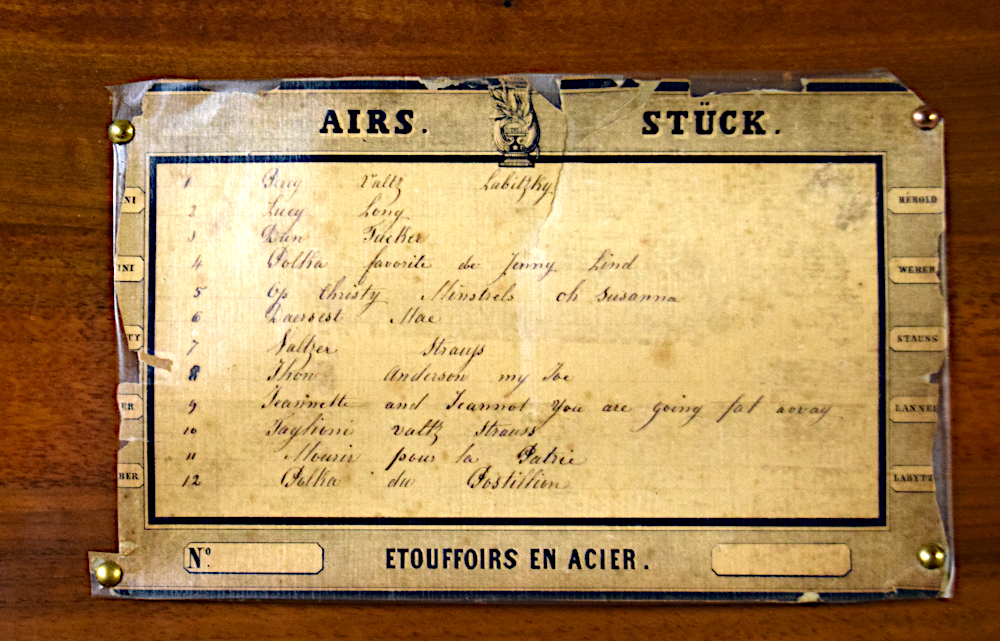 AIRS. STÜCK.
1 Percy Valtz Labitzky
2 Lucy Long
3 Dan Tucker
4 Polka favorite de Jenny Lind
5 Op Christy Minstrels oh Susanna
6 Daersest Mae
7 Valtzer Strauss
8 Jhon Anderson my Joe
9 Jeannette and Jeannot You are going fat avvay
10 Taglioni valtz Strauss
11 Mourir pour la Patrie
12 Polka du Postillion
NI
INI
TY
ER
BER
HEROLD
WEBER
STAUSS
LANNE
LABYTZ
Nº. ETOUFFOIRS EN ACIER.